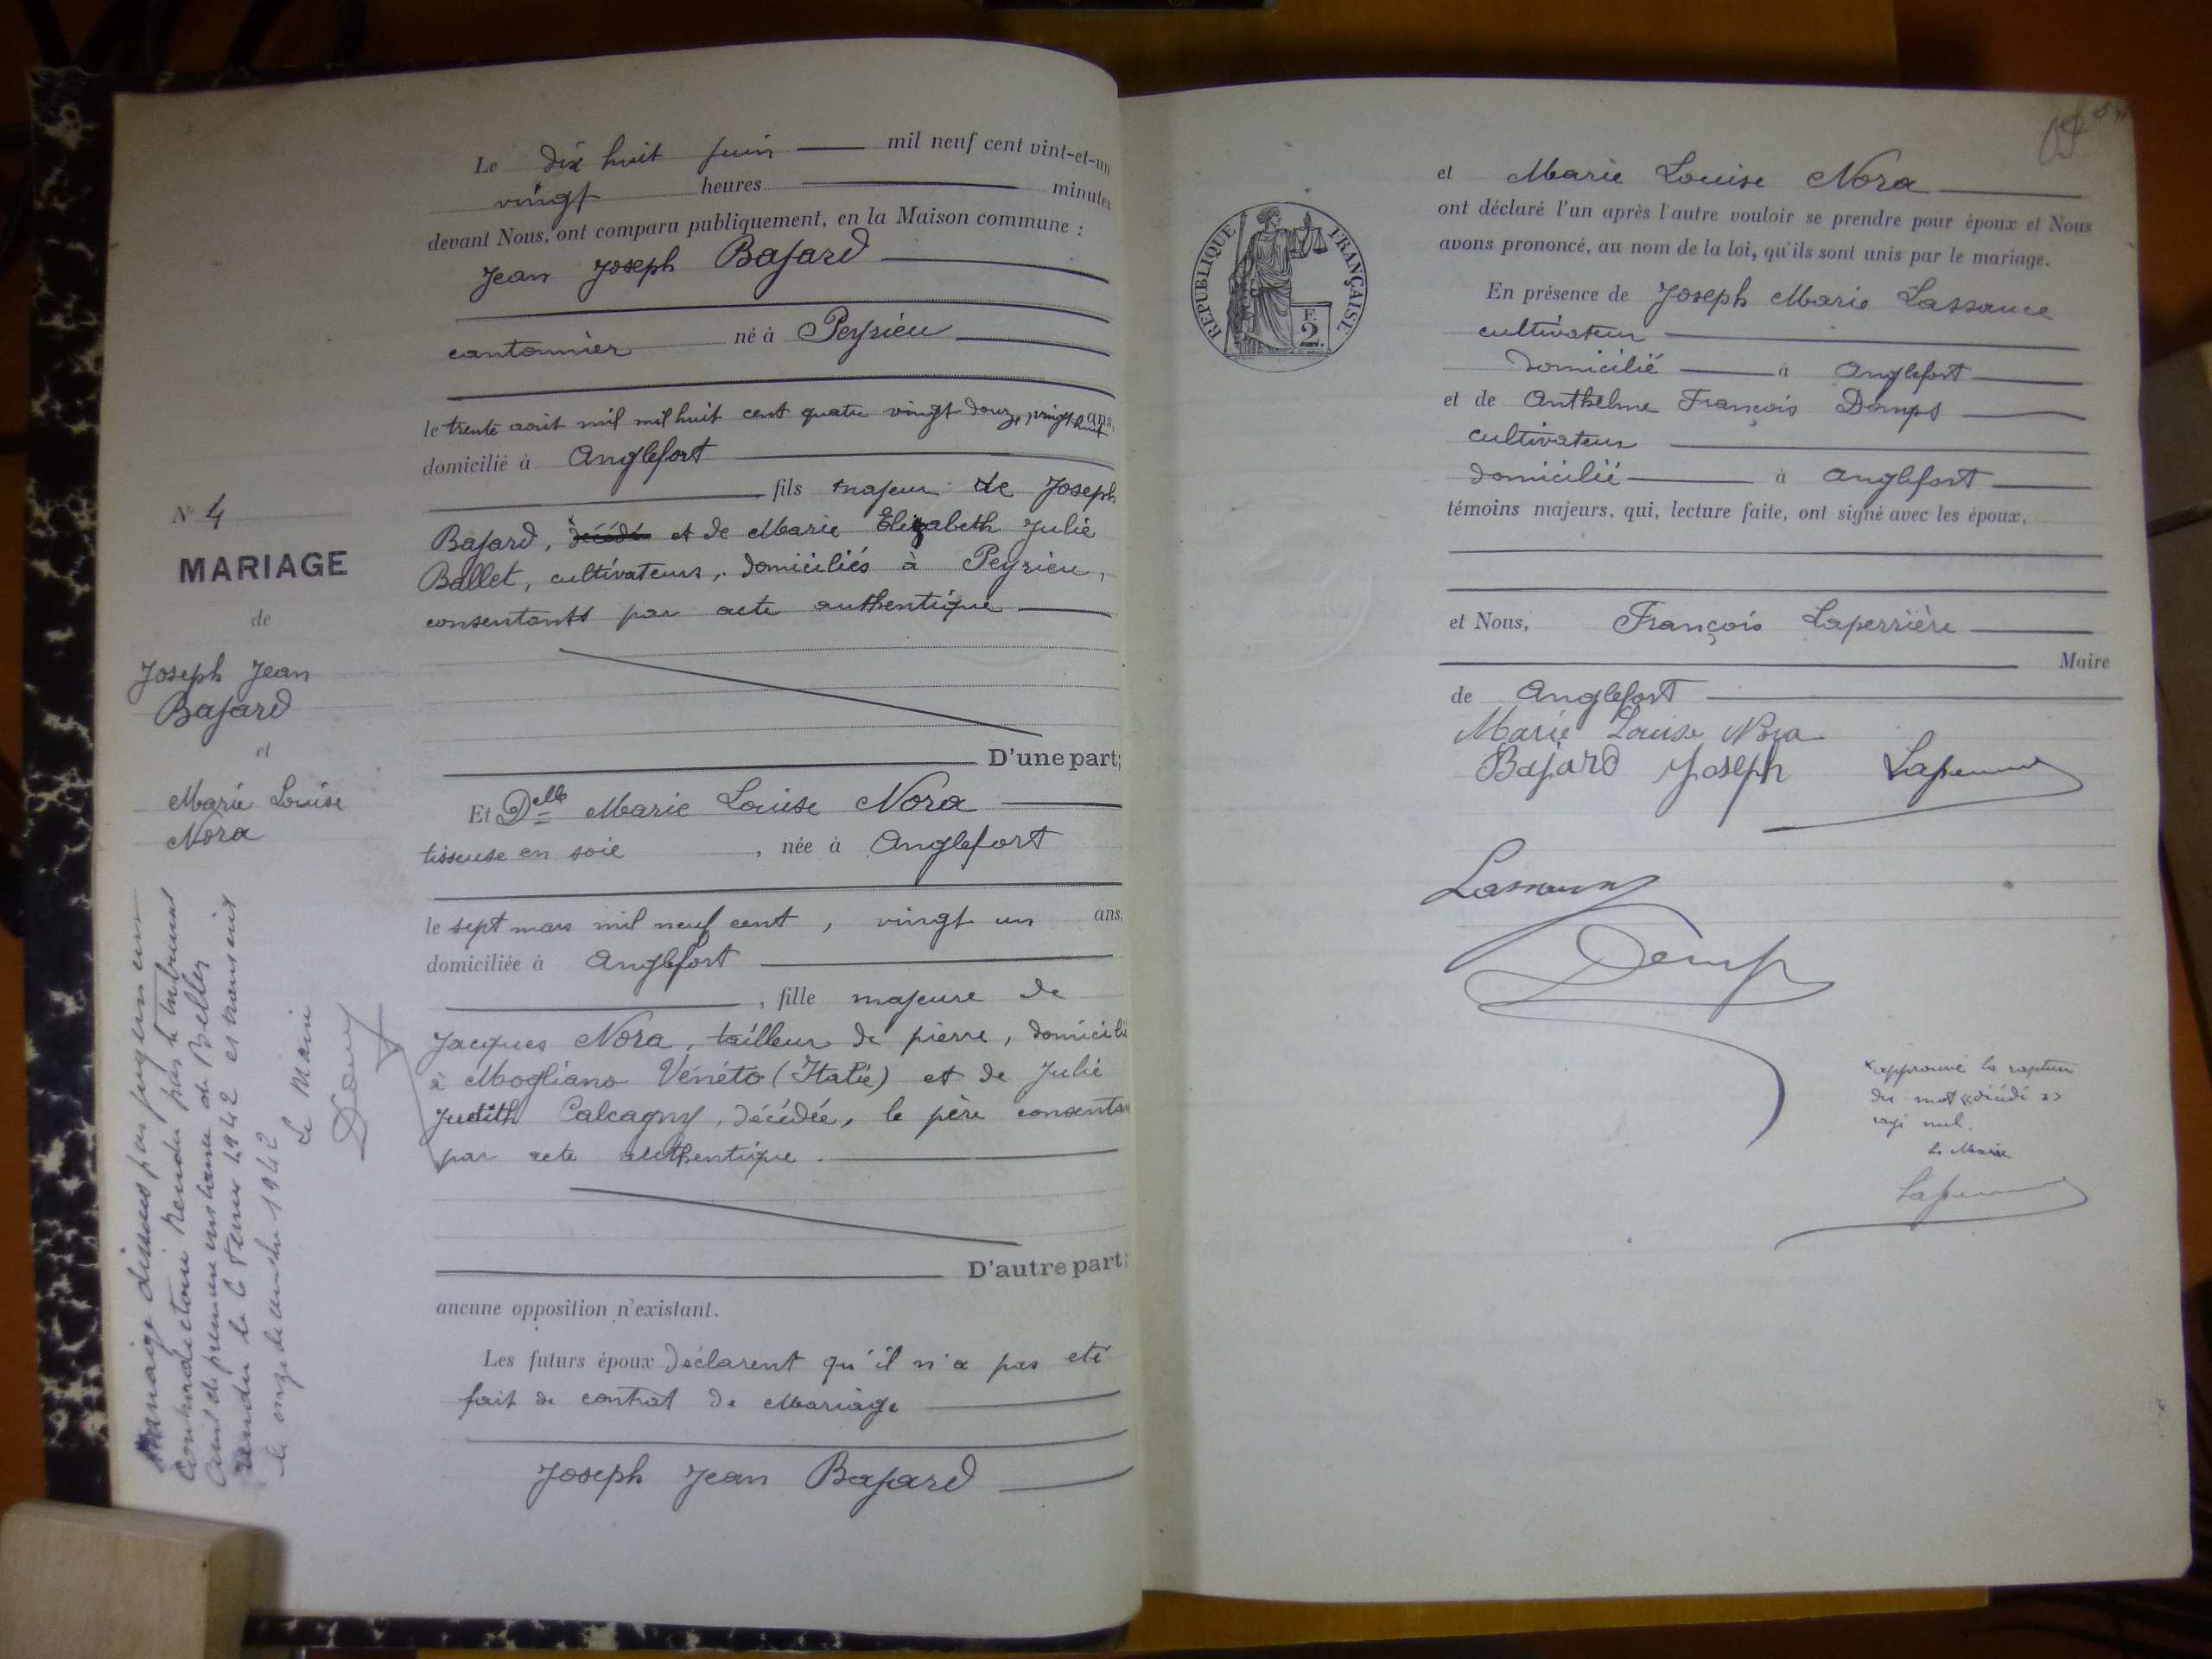 Le dix huit juin mil neuf cent vint-et-un
vingt heures minutes
devant Nous, ont comparu publiquement, en la Maison commune :
Jean Joseph Bajard
cantonnier né à Peyrieu
le trente aout mil mil huit cent quatre vingt douze, vingt huit ans,
domicilié à Anglefort
fils majeur de Joseph
Bajard, décédé et de Marie Elizabeth Julie
Ballet, cultivateurs, domiciliés à Peyrieu,
consentants par acte authentique
D'une part;
Et Delle Marie Louise Nora
tisseuse en soie, née à Anglefort
le sept mars mil neuf cent, vingt un ans,
domiciliée à Anglefort
, fille majeure de
Jacques Nora, tailleur de pierre, domicilié
à Mogliano Vénéto (Italie) et de Julie
Judith Calcagny, décédée, le père consentant
par acte authentique.
D'autre part;
aucune opposition n'existant.
Les futurs époux déclarent qu'il n'a pas eté
fait de contrat de Mariage
Joseph Jean Bajard
N° 4
MARIAGE
de
Joseph Jean
Bajard
et
Marie Louise
Nora
Mariage dissous par jugement
Contradictoire rendu par le tribunal
Civil de première instance de Belley
rendu le 6 1942 et transcrit
le onze décembre 1942
Le Maire
et Marie Louise Nora
ont déclaré l'un après l'autre vouloir se prendre pour époux et Nous
avons prononcé, au nom de la loi, qu'ils sont unis par le mariage.
En présence de Joseph Marie Lassauce
cultivateur
domicilié à Anglefort
et de Anthelme François Domps
cultivateur
domicilié à Anglefort
témoins majeurs, qui, lecture faite, ont signé avec les époux,
et Nous, François Laperrière
Maire
de Anglefort
Marie Louise Nora
Bajard Joseph
x approuvé la rapture
du mot «décédé»
rayé nul.
Le Maire
REPUBLIQUE FRANÇAISE
E
2.